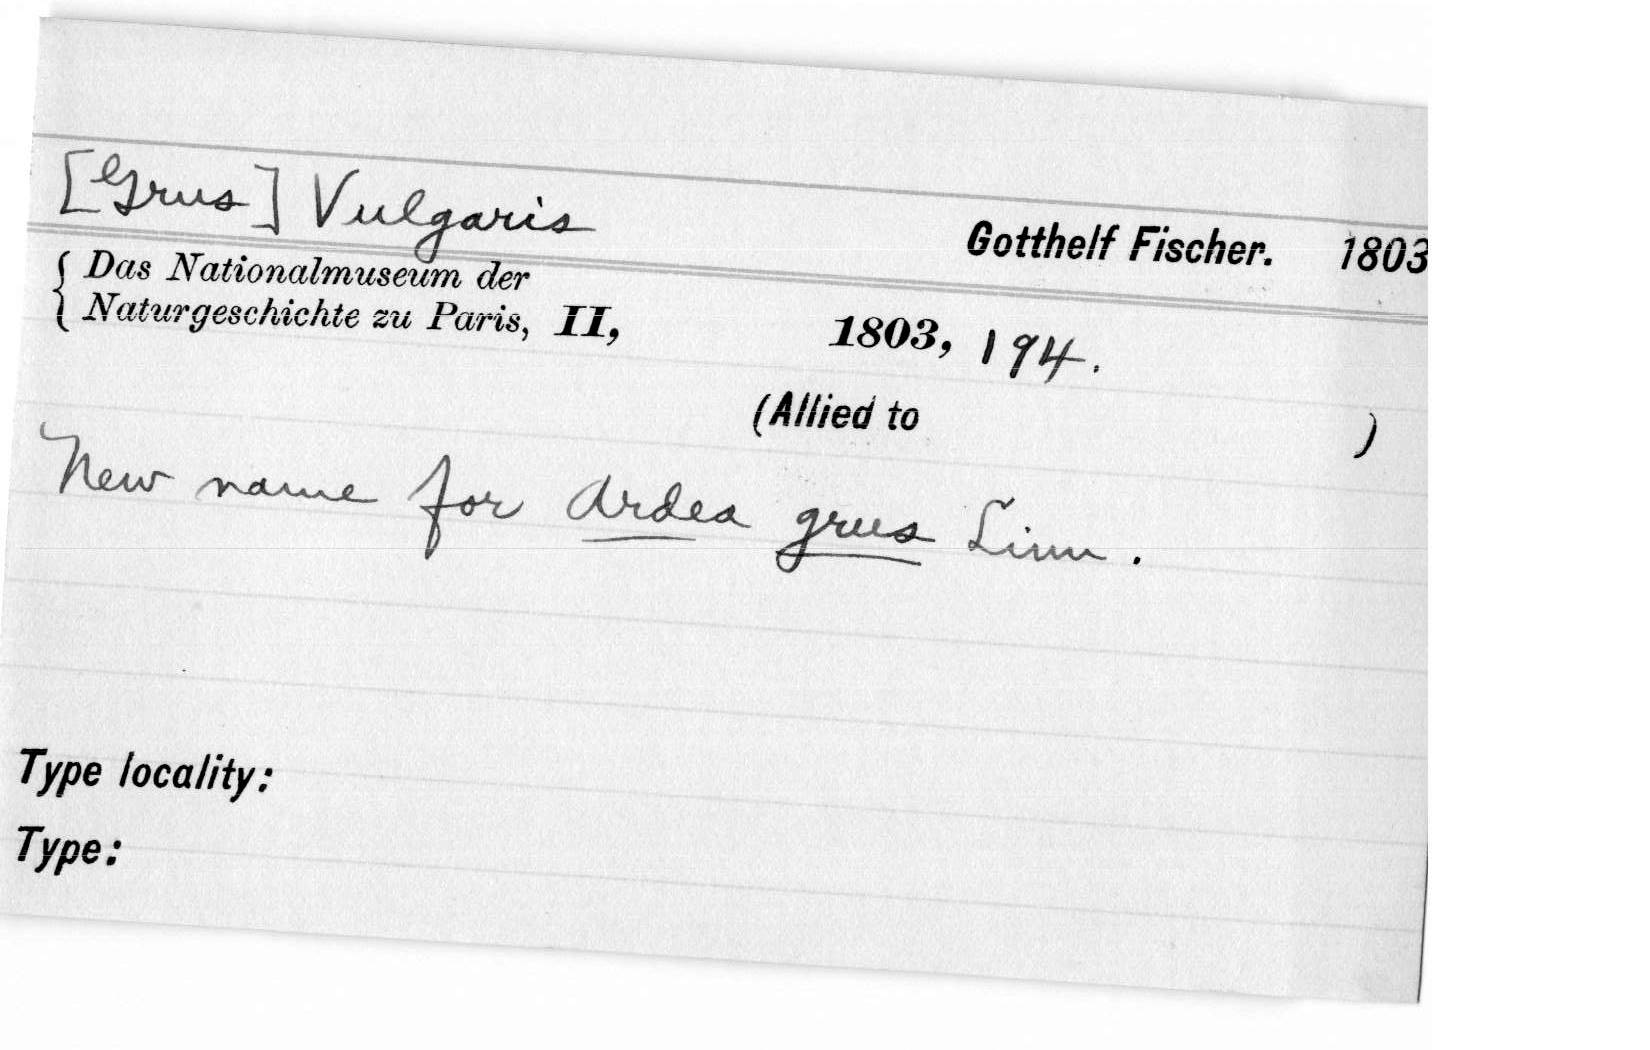 [Grus] Vulgaris Gotthelf Fischer. 1803
{ Das Nationalmuseum der
Naturgeschichte zu Paris, II, 1803, 194.
(Allied to )
New name for Ardea grus Linn.
Type locality:
Type: